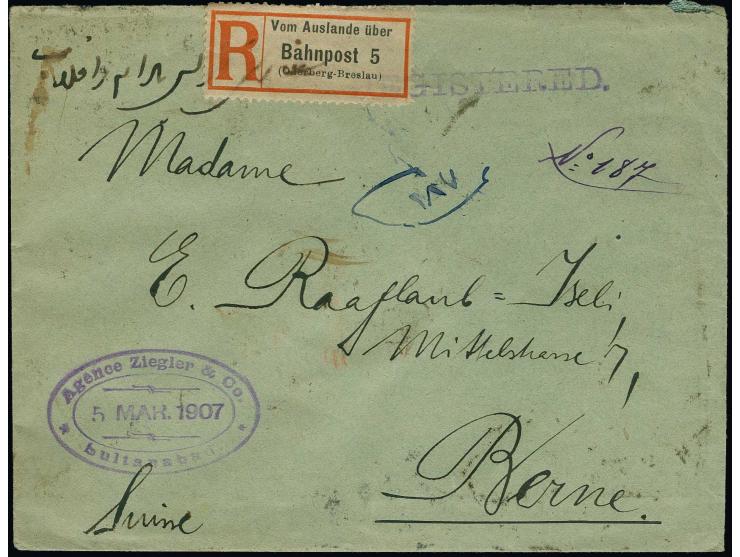 R
Vom Auslande über
Bahnpost 5
(Oderberg-Breslau)
REGISTERED.
Madame
No. 187
١٨٧
E. Raaflaub=Iseli,
Mittelstrasse 7,
Berne.
Suisse
Agence Ziegler & Co.
5 MAR. 1907
* Sultanabad *